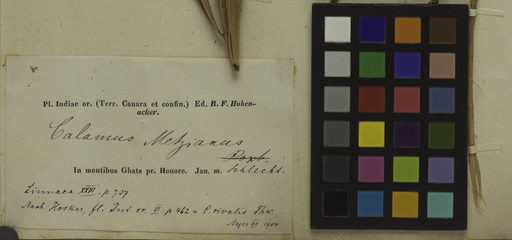 Pl. Indiae or. (Terr. Canara et confin,) Ed. R. F. Hohen-
acker.
Calamus Metzianus
Roxb.
In montibus Ghats pr. Honore. Jan. m. Schlecht.
Linnaea XXVI. p 727
Nach Hooker, fl. Ind. or. VI p 462 = C. rivalis Thw.
1900